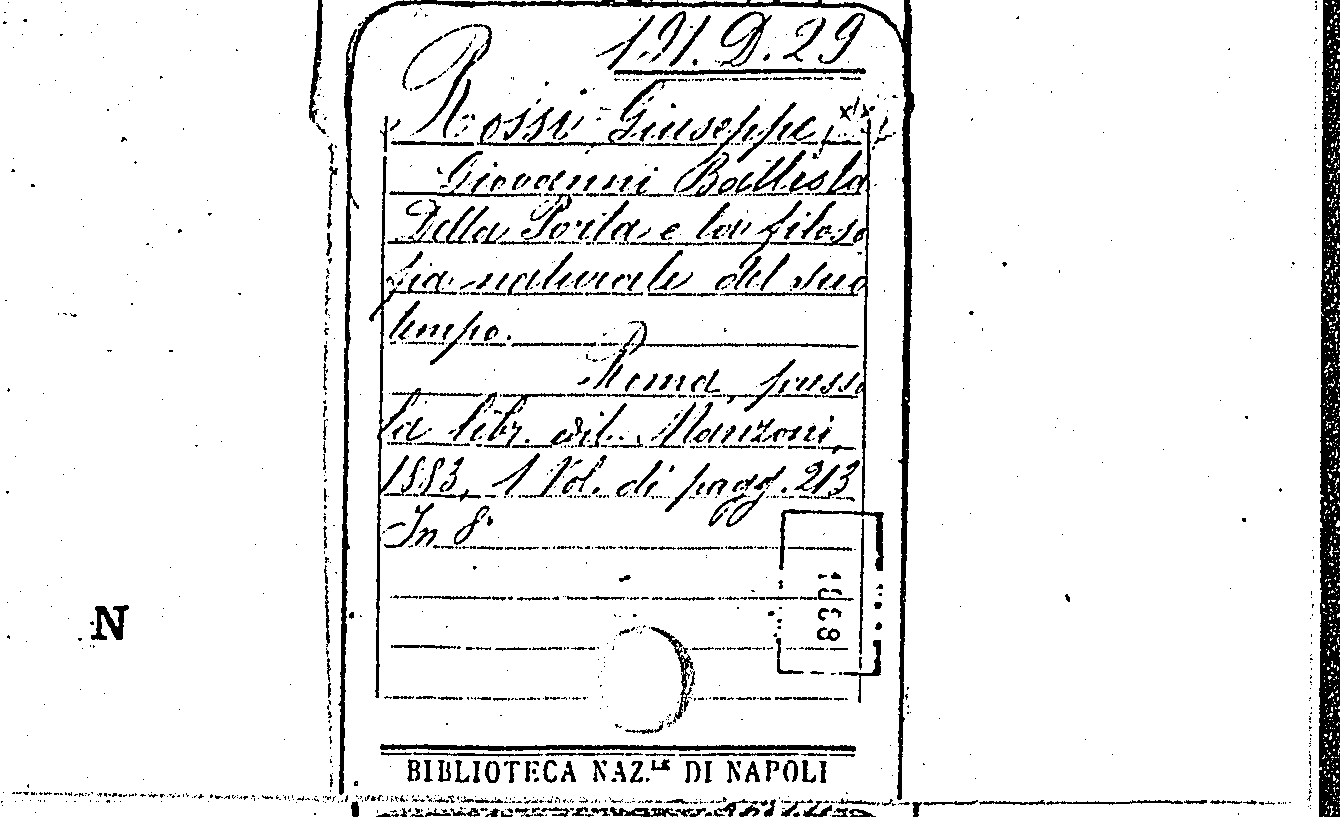 191. D. 29
Rossi Giuseppe,
Giovanni Battista
Della Porta e la filoso
fia naturale del suo
tempo.
Roma, presso
la libr. edit. Manzoni,
1883, 1 Vol. di pagg. 213
In 8°
N
BIBLIOTECA NAZ.LE DI NAPOLI